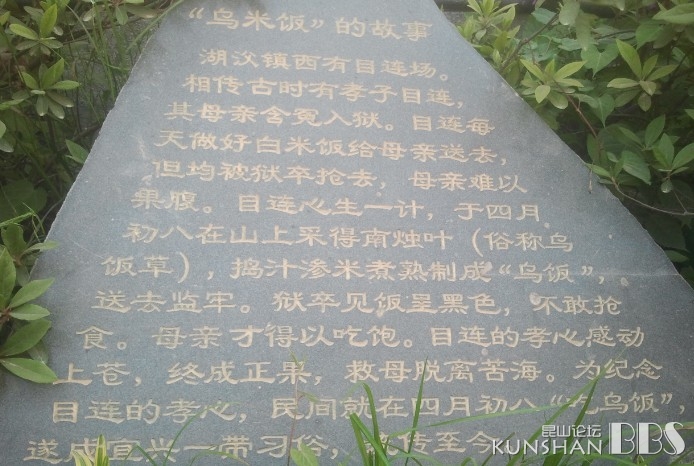 “乌米饭”的故事
湖㳇镇西有目连场。
相传古时有孝子目连，
其母亲含冤入狱。目连每
天做好白米饭给母亲送去，
但均被狱卒抢去，母亲难以
果腹。目连心生一计，于四月
初八在山上采得南烛叶（俗称乌
饭草），捣汁渗米煮熟制成“乌饭”，
送去监牢。狱卒见饭呈黑色，不敢抢
食。母亲才得以吃饱。目连的孝心感动
上苍，终成正果，救母脱离苦海。为纪念
目连的孝心，民间就在四月初八“吃乌饭”，
遂成宜兴一带习俗，传至今
昆山论坛
KUNSHAN BBS